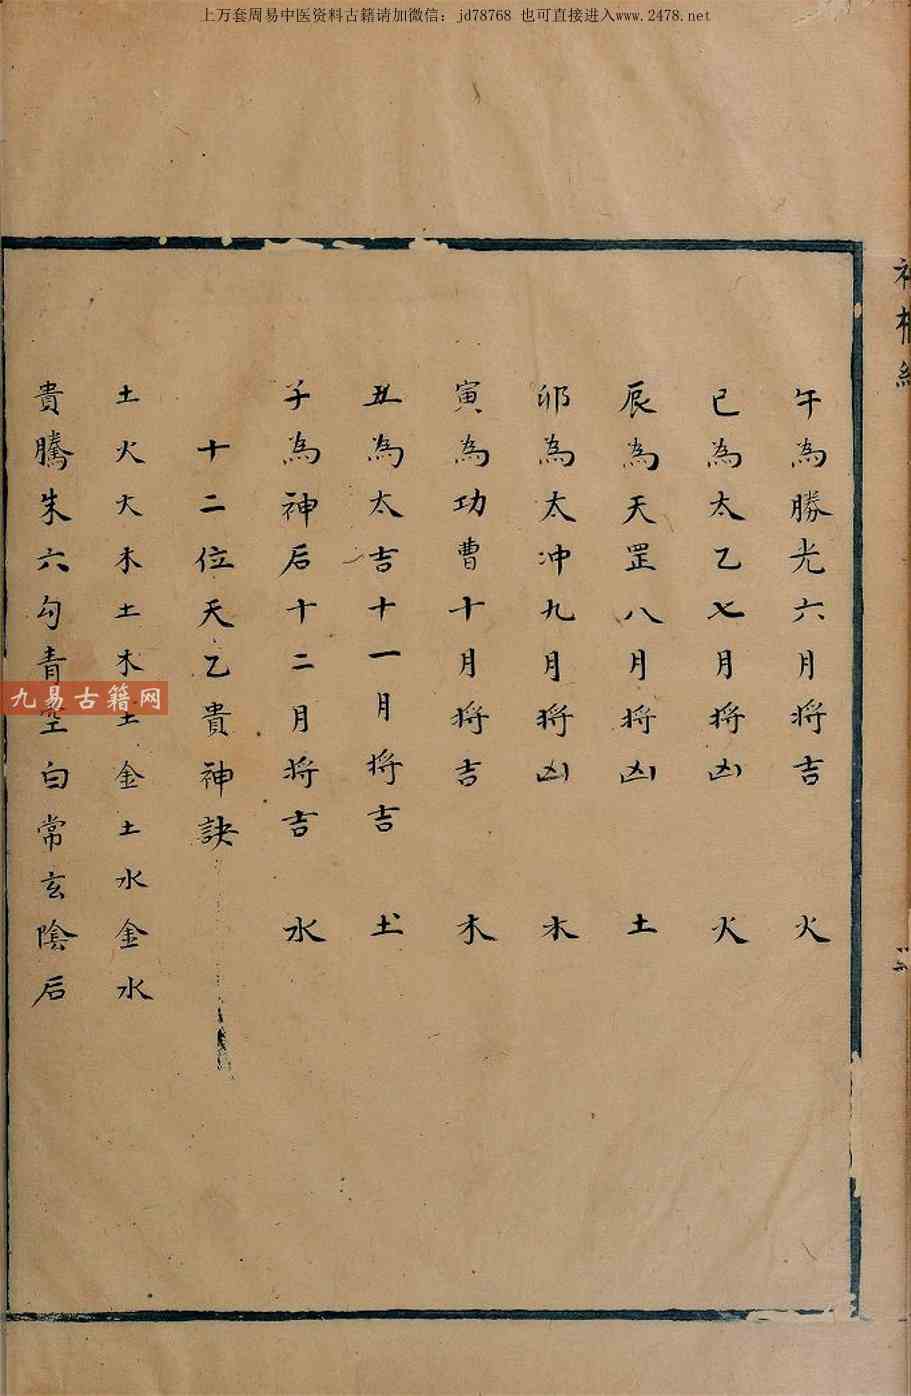 上万套周易中医资料古籍请加微信：jd78768 也可直接进入www.2478.net
午為勝光六月将吉 火
巳為太乙七月将凶 火
辰為天罡八月将凶 土
卯為太冲九月将凶 木
寅為功曹十月将吉 木
丑為太吉十一月将吉 土
子為神后十二月将吉 水
十二位天乙貴神訣
土火火木土木土金土水金水
貴騰朱六勾青空白常玄陰后
九易古籍网